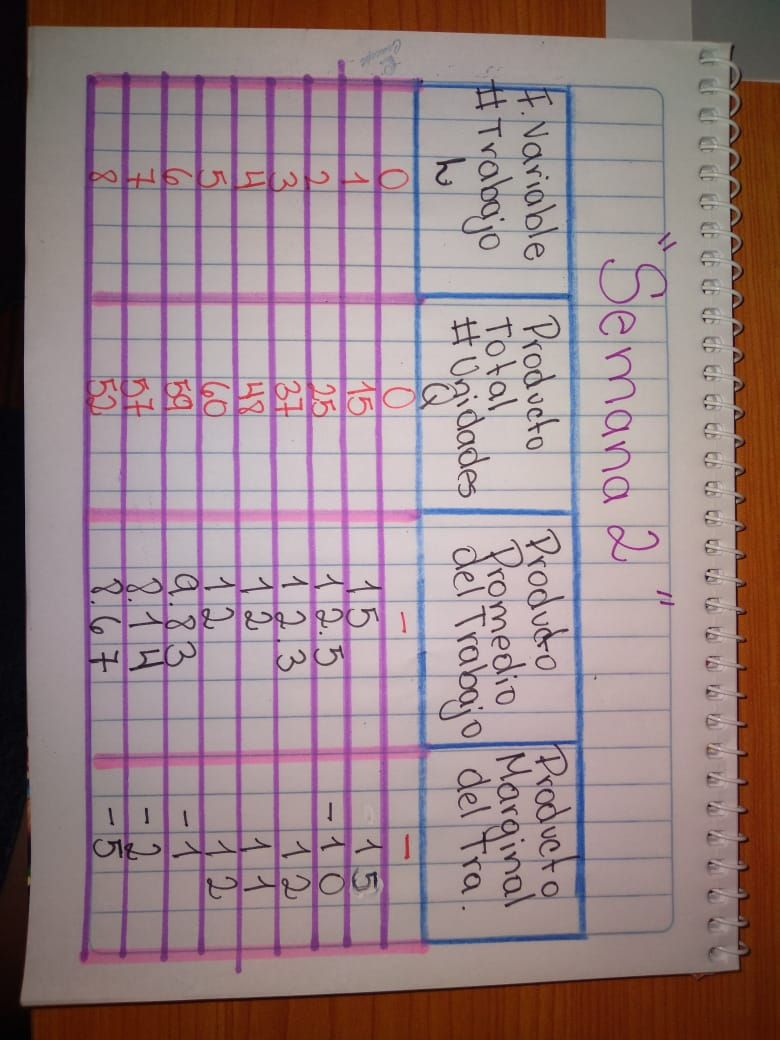 "Semana 2"
F. Variable # Trabajo L | Producto Total # Unidades Q | Producto Promedio del Trabajo | Producto Marginal del Tra.
0 | 0 | - | -
1 | 15 | 15 | 15
2 | 25 | 12.5 | -10
3 | 37 | 12.3 | 12
4 | 48 | 12 | 11
5 | 60 | 12 | 12
6 | 59 | 9.83 | -1
7 | 57 | 8.14 | -2
8 | 52 | 8.67 | -5